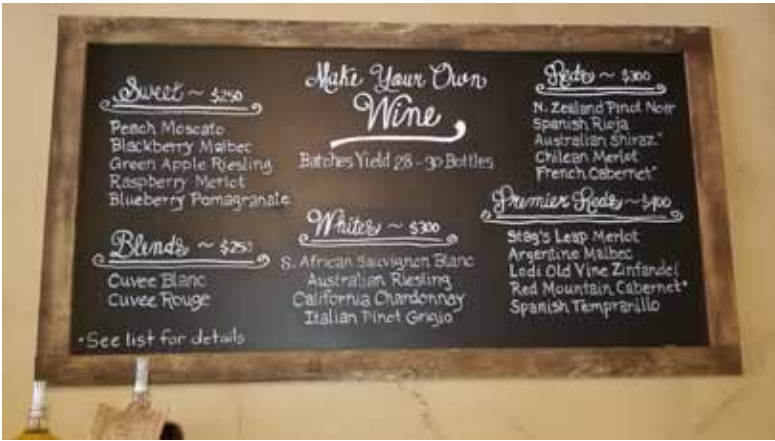 Make Your Own
Wine
Batches Yield 28-30 Bottles
Sweet ~ $250
Peach Moscato
Blackberry Malbec
Green Apple Riesling
Raspberry Merlot
Blueberry Pomagranate
Blends ~
Cuvee Blanc
Cuvee Rouge
*See list for details
Whites ~ $300
S. African Sauvignon Blanc
Australian Riesling
California Chardonnay
Italian Pinot Grigio
Reds ~ $300
N. Zealand Pinot Noir
Spanish Rioja
Australian Shiraz*
Chilean Merlot
French Cabernet*
Premier Reds ~ $400
Stag's Leap Merlot
Argentine Malbec
Lodi Old Vine Zinfandel
Red Mountain Cabernet*
Spanish Tempranillo